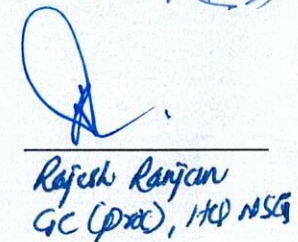 Rajesh Ranjan
GC (Proc), HQ NSG